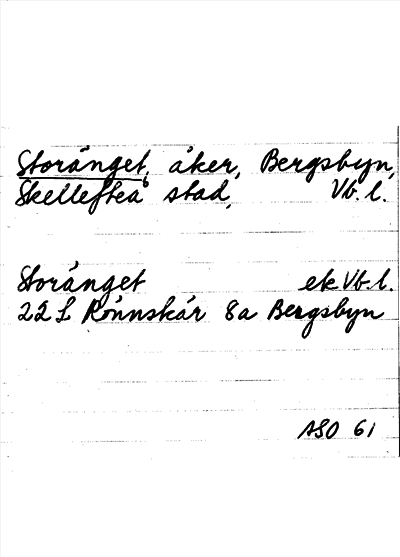 Storänget, åker, Bergsbyn,
Skellefteå stad, Vb. l.
Storänget ek Vb. l.
22 L Rönnskär 8a Bergsbyn
ASO 61